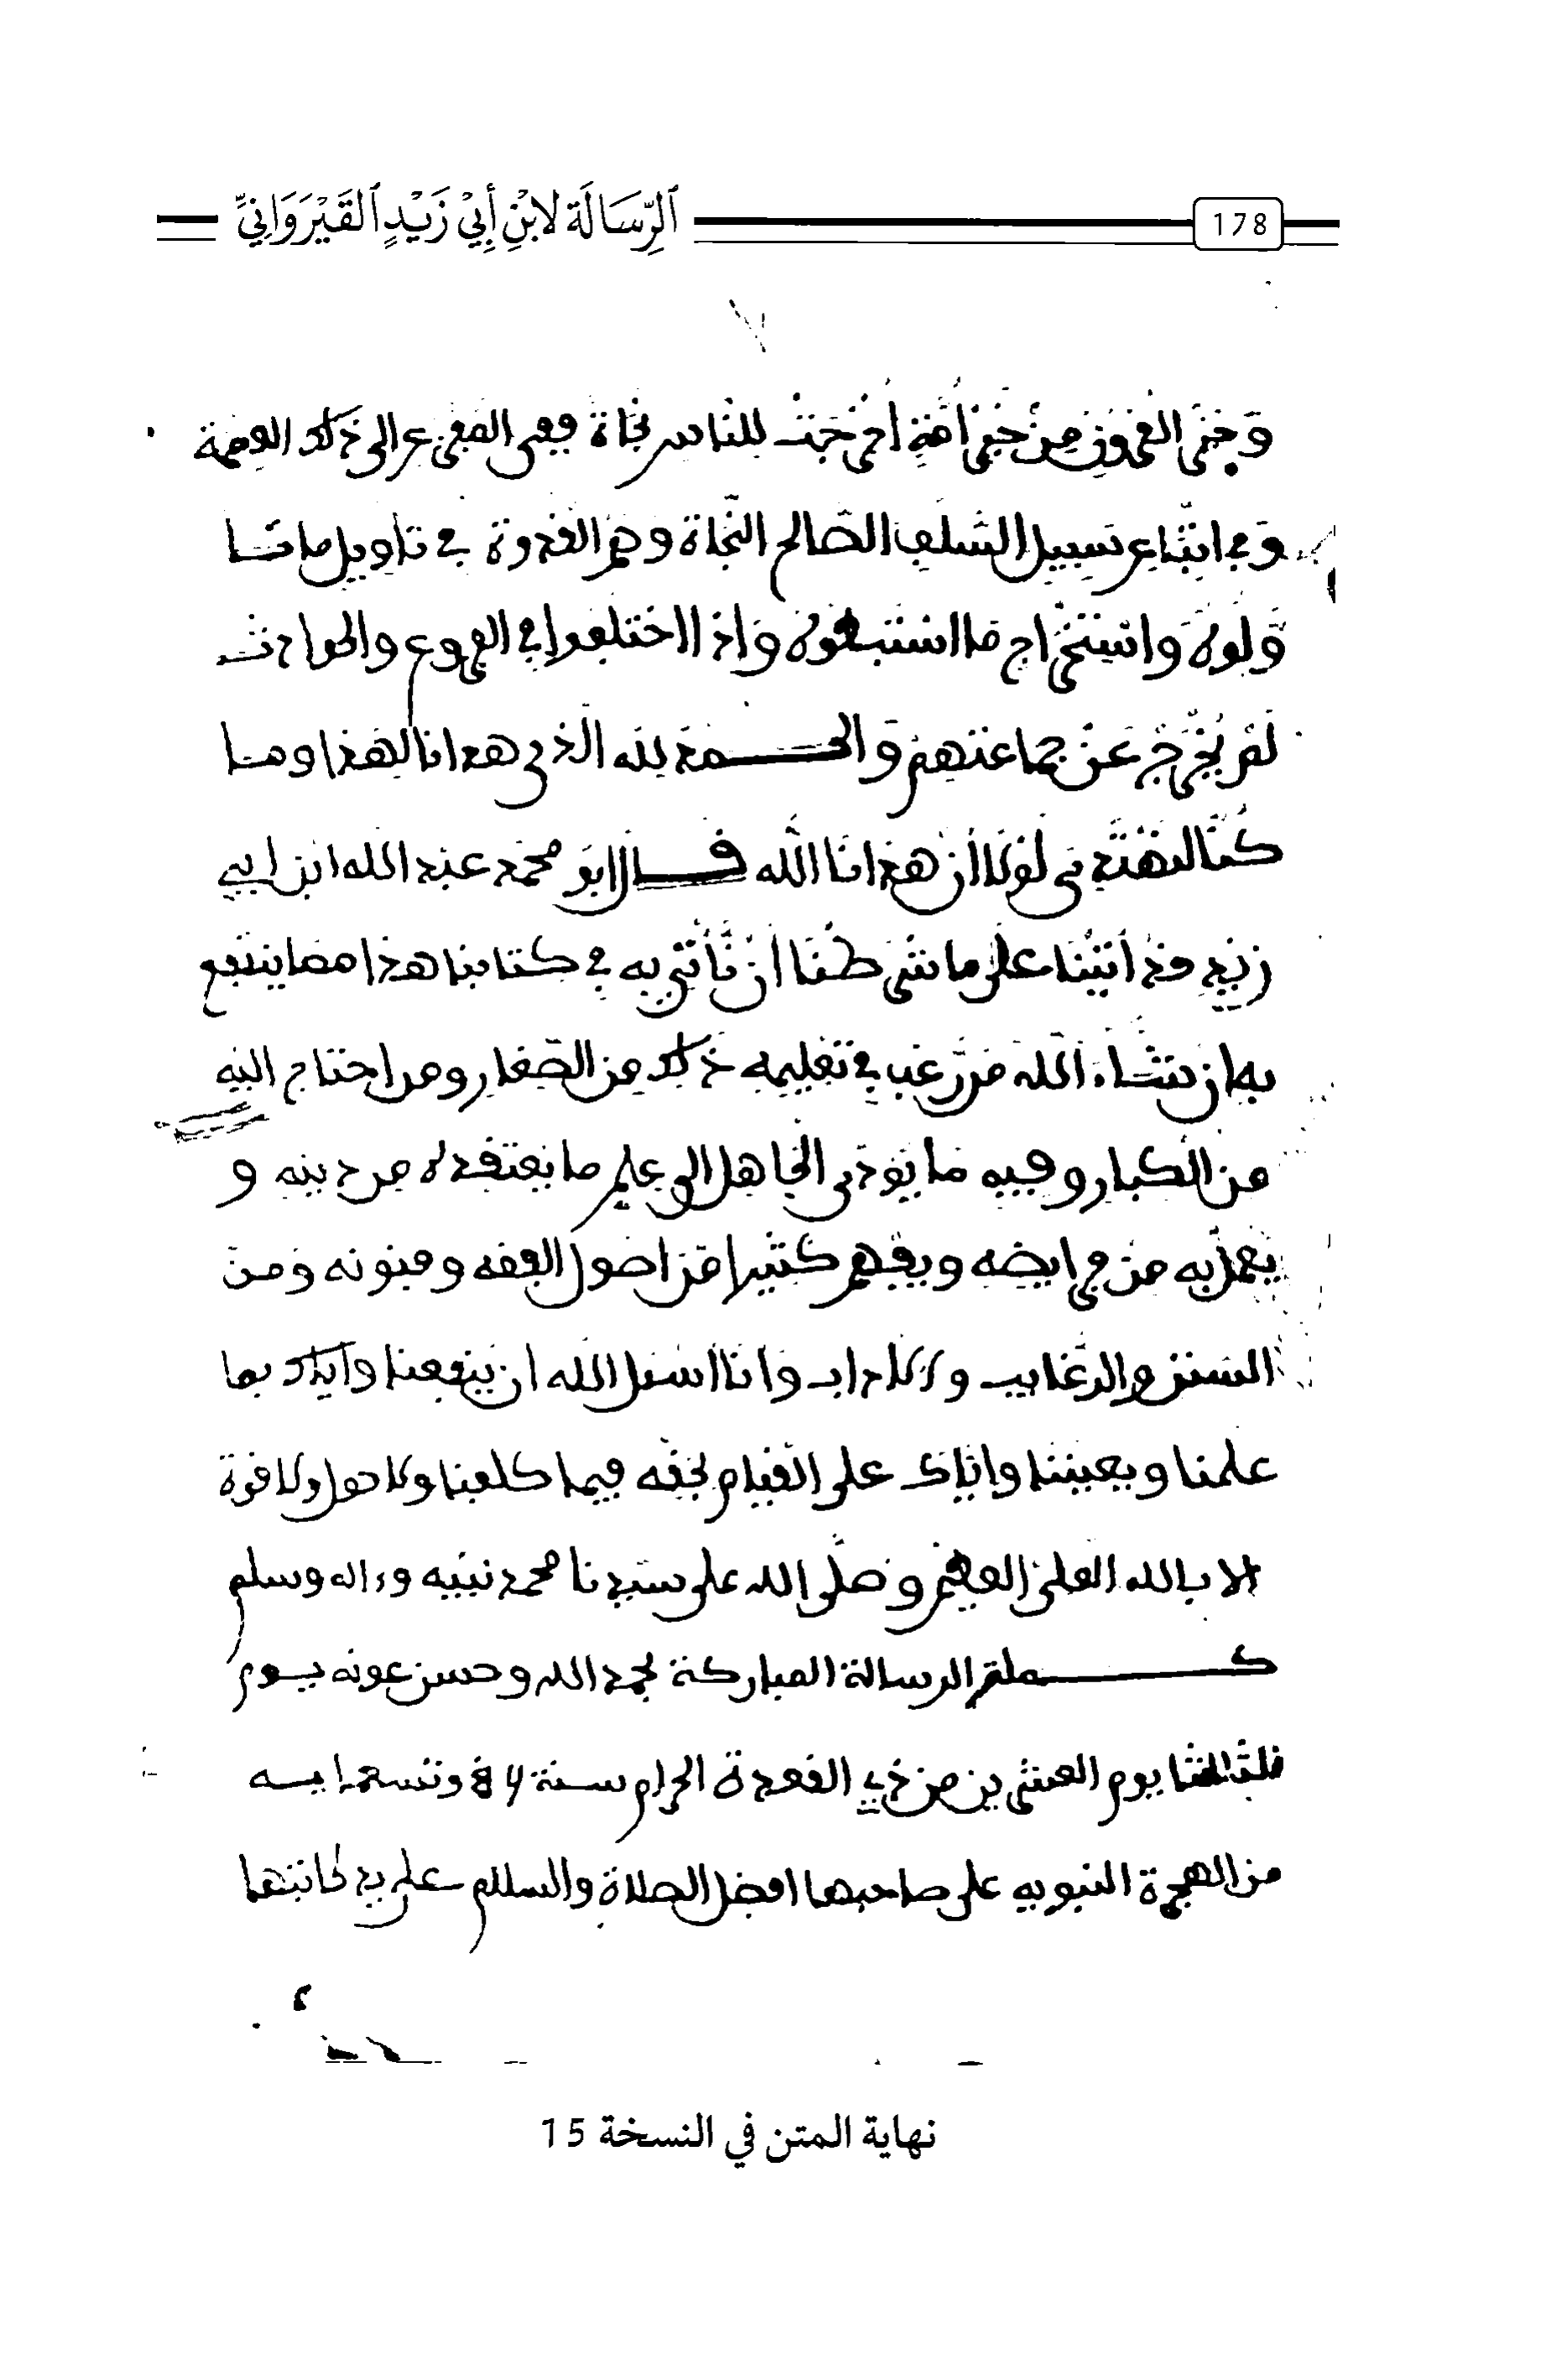 الرِّسَالَة لابْنِ أَبِيْ زَيْدٍ القَيْرَوَانِيِّ
178
وَخَيْرِ الْقُرُونِ مِنْ خَيْرِ أُمَّةٍ أُخْرِجَتْ للناس نجاة ففي المفزع إلى ذلك العصمة
وَفي اتّبَاعِ سَبِيلِ السَّلَفِ الصَّالحِ النّجَاة وَهُمُ القدوة في تاويل ما تـا
وَّلوهُ وَاسْتِخْرَاج مَا اسْتَنبطُوهُ وَإذا اخْتَلَفوا في الفروع والحوادث
لَمْ يُخْرَجْ عَنْ جماعتهمْ وَالحـمدُ لله الَّذي هدانا لهَذا وما
كُنَّا لنَهْتَدِي لَوْلَا أنْ هَدانَا اللَّه قـال ابُو محمّد عبْد الله ابن ابي
زيْد قدْ أتَيْنَا على ما شَرَطْنَا أنْ نَّأتيَ به في كتابنا هذا مما ينتفع
به ان شَاء اللَّهُ مَن رَّغب في تعْليمه ذلك من الصّغار ومن احتاج اليْه
من الكبار وفيه مَا يُؤدّي الجاهل الى علم ما يعتقده من دينه و
يَعملُ به من فرايضه ويفهم كثيرا مّن اصُول الفقه وفنونه وَمنَ
السّنن والرّغايب والاداب وَأنَا اسْئل الله ان ينفعنا وايّاك بما
علمنا ويعيننا وايّاك على القيام بحقّه فيما كلفنا ولا حول ولا قوة
الا بالله العليّ العظيم وصَلَّى الله على سيّدنا محمد نبيّه وءاله وسلم
كـملت الرسالة المباركة بحمد الله وحسن عونه يـوم
الثلاثا يوم العشرين من ذي القعدة الحرام سنة 84 وتسعماية
من الهجرة النبويه على صاحبها افضل الصلاة والسلام على يد كاتبها
نهاية المتن في النسخة 15